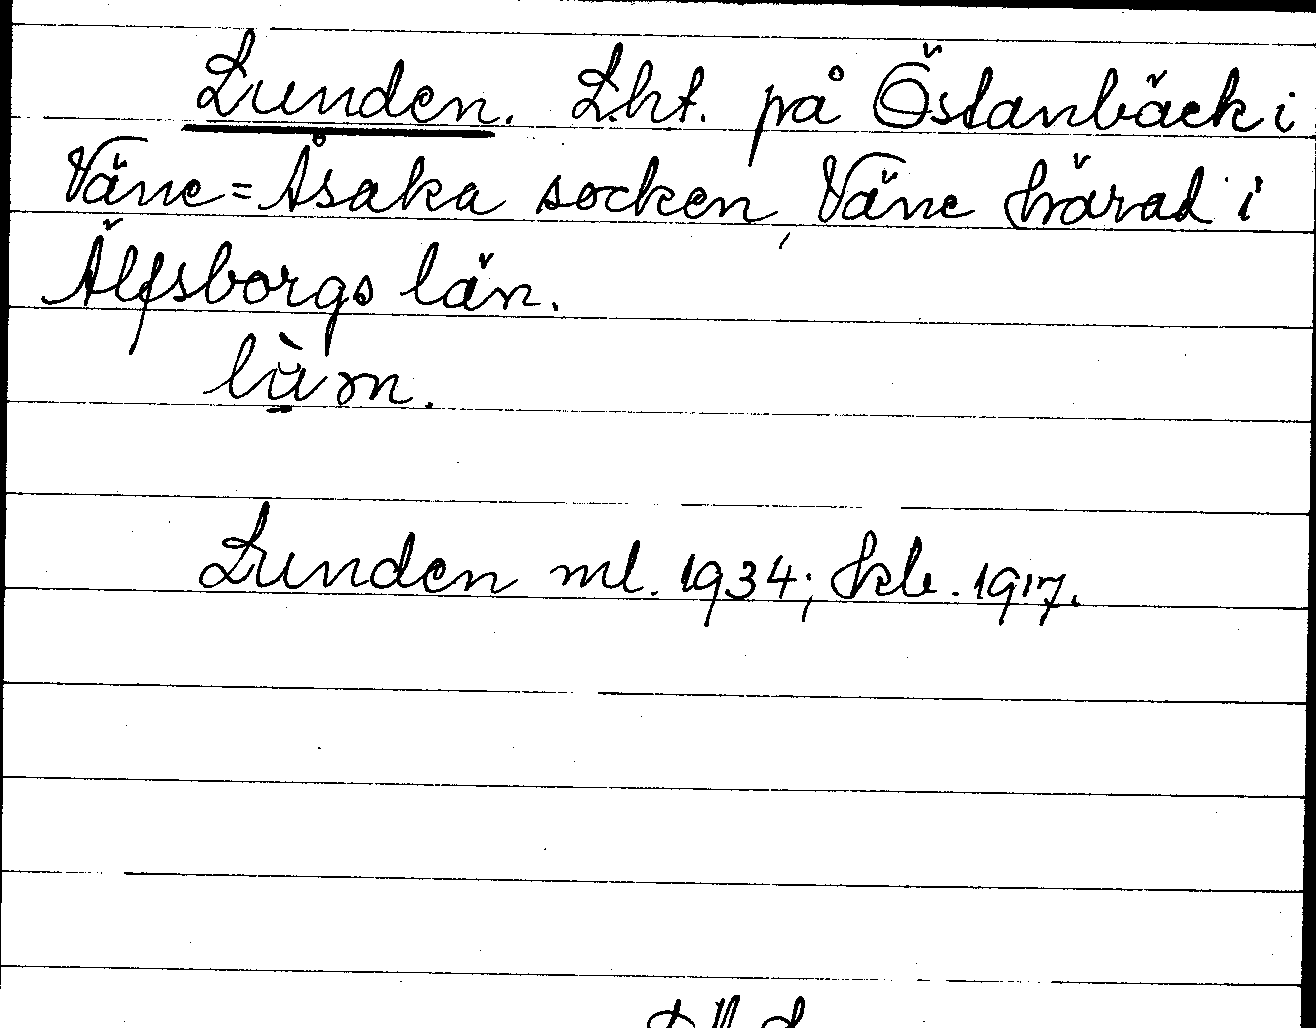 Lunden. Lht. på Östanbäck i
Väne=Åsaka socken, Väne härad i
Älfsborgs län.
Lunden ml. 1934; Hkb. 1917.